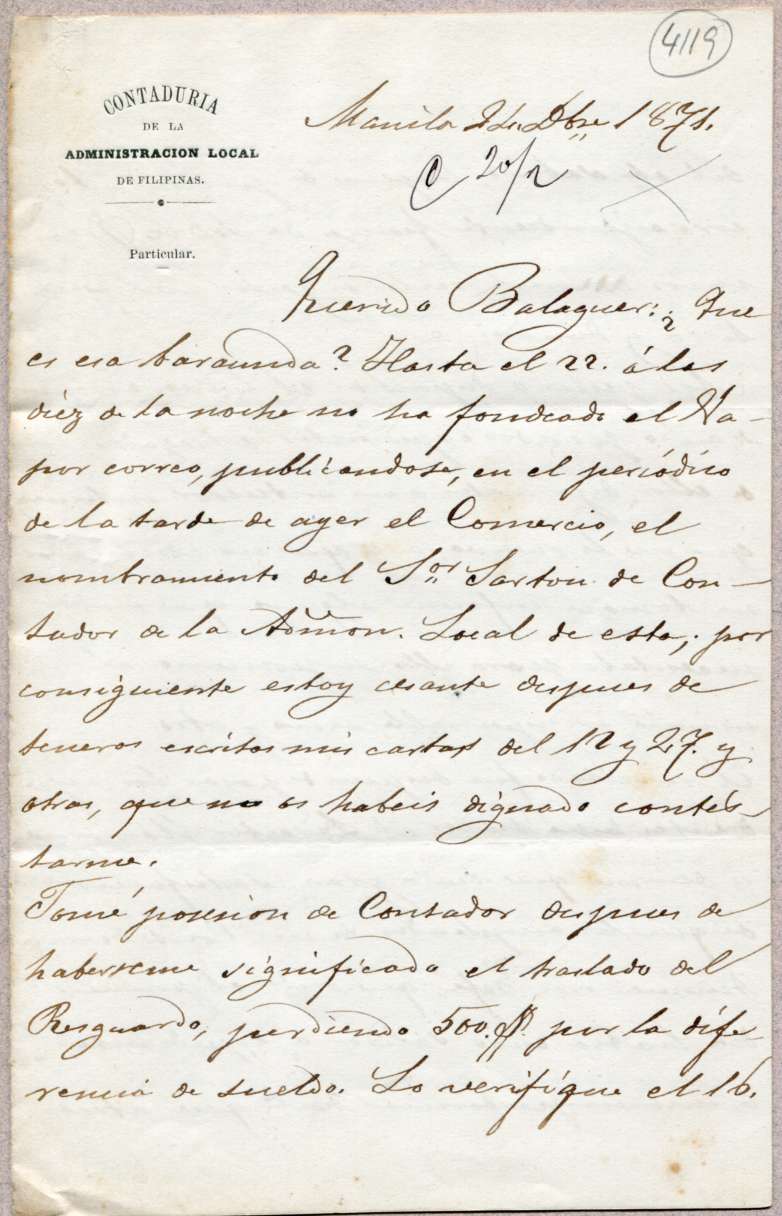 4119
CONTADURIA
DE LA
ADMINISTRACION LOCAL
DE FILIPINAS.
Particular.
Manila 24 Dbre 1871.
C 20/2
Querido Balaguer: ¿Que
es esa baraunda? Hasta el 22. á las
diéz de la noche no ha fondeado el Va-
por correo, publicandose, en el periódico
de la tarde de ayer el Comercio, el
nombramiento del Sor Sartou de Con-
tador de la Admon. Local de esta; por
consiguiente estoy cesante despues de
teneros escritos mis cartas del 12 y 27. y
otras, que no os habeis dignado contes-
tarme.
Tomé posesion de Contador despues de
haberseme significado el traslado del
Resguardo, perdiendo 500. ps. por la dife-
rencia de sueldo. Lo verifiqué el 16.